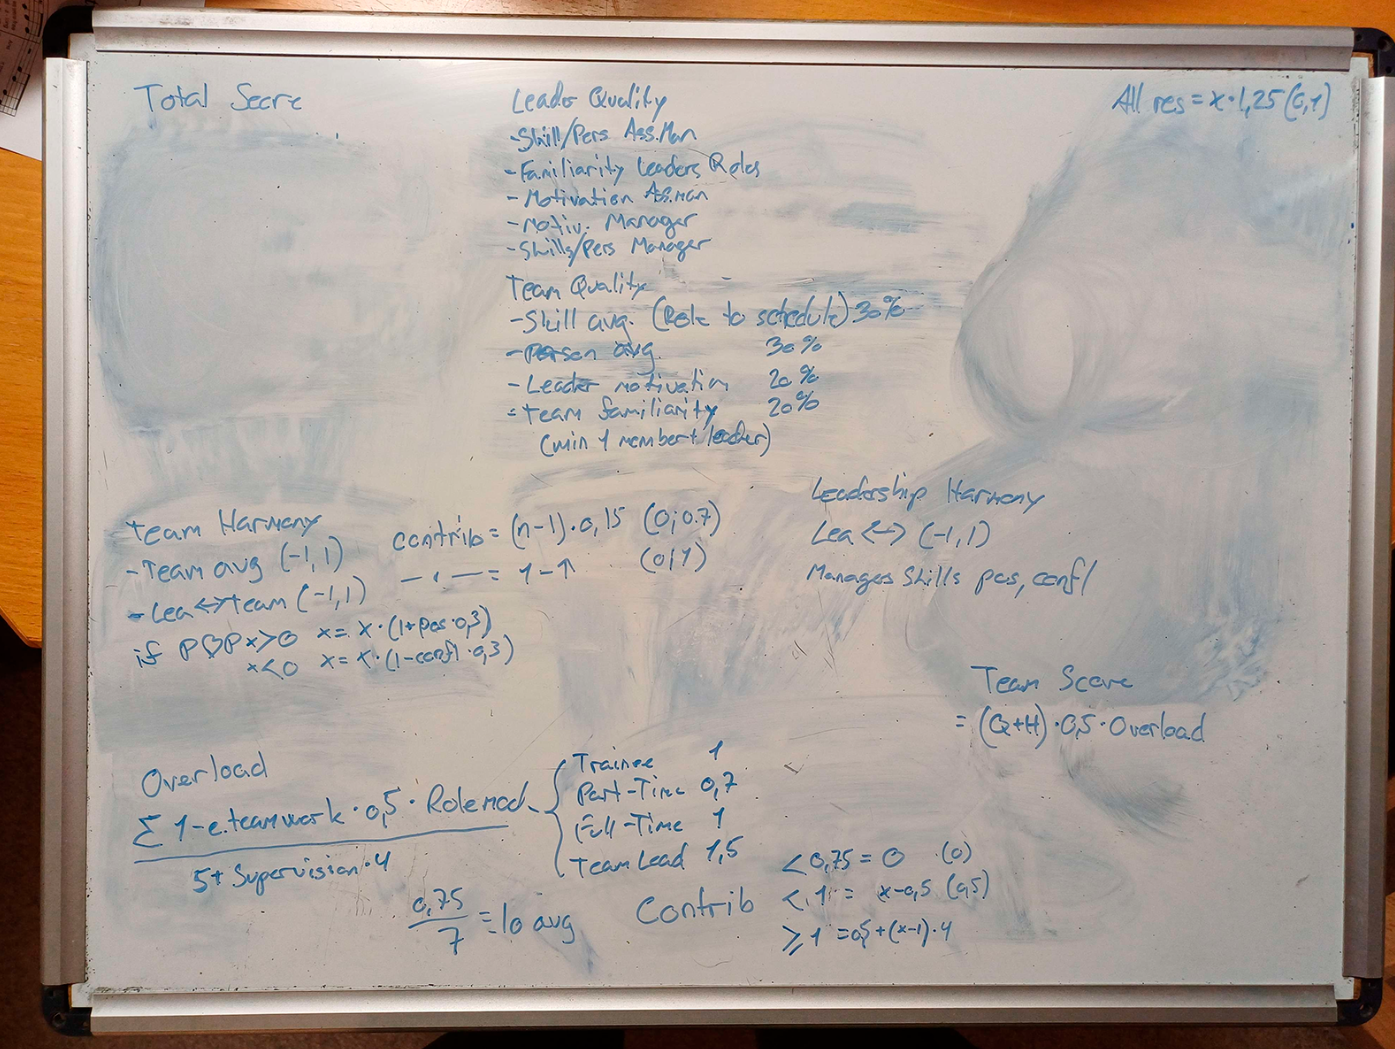 Total Score
Leader Quality
-Skill/Pers Ass.Man
-Familiarity Leaders Roles
-Motivation Ass.man
-Motiv. Manager
-Skills/Pers Manager
Team Quality
-Skill avg. (Role to schedule) 30%
-Person avg. 30%
-Leader motivation 20%
-team familiarity 20%
(min 1 member+leader)
All res = x·1,25 (0,1)
Team Harmony
-Team avg (-1,1)
-Lea<->team (-1,1)
if P♡P x>0 x=x·(1+pos·0,3)
x<0 x=x·(1-confl·0,3)
contrib=(n-1)·0,15 (0;0.7)
—·—= 1-↑ (0,1)
Leadership Harmony
Lea <-> (-1,1)
Manages Skills pos, confl
Team Score
=(Q+H)·0,5·Overload
Overload
Σ 1-e.teamwork·0,5·Rolemod.
5+Supervision·4
Trainee 1
Part-Time 0,7
Full-Time 1
TeamLead 1,5
0,75
7
=10 avg
Contrib
<0,75=0 (0)
<1= x-0,5 (0,5)
≥1=0,5+(x-1)·4